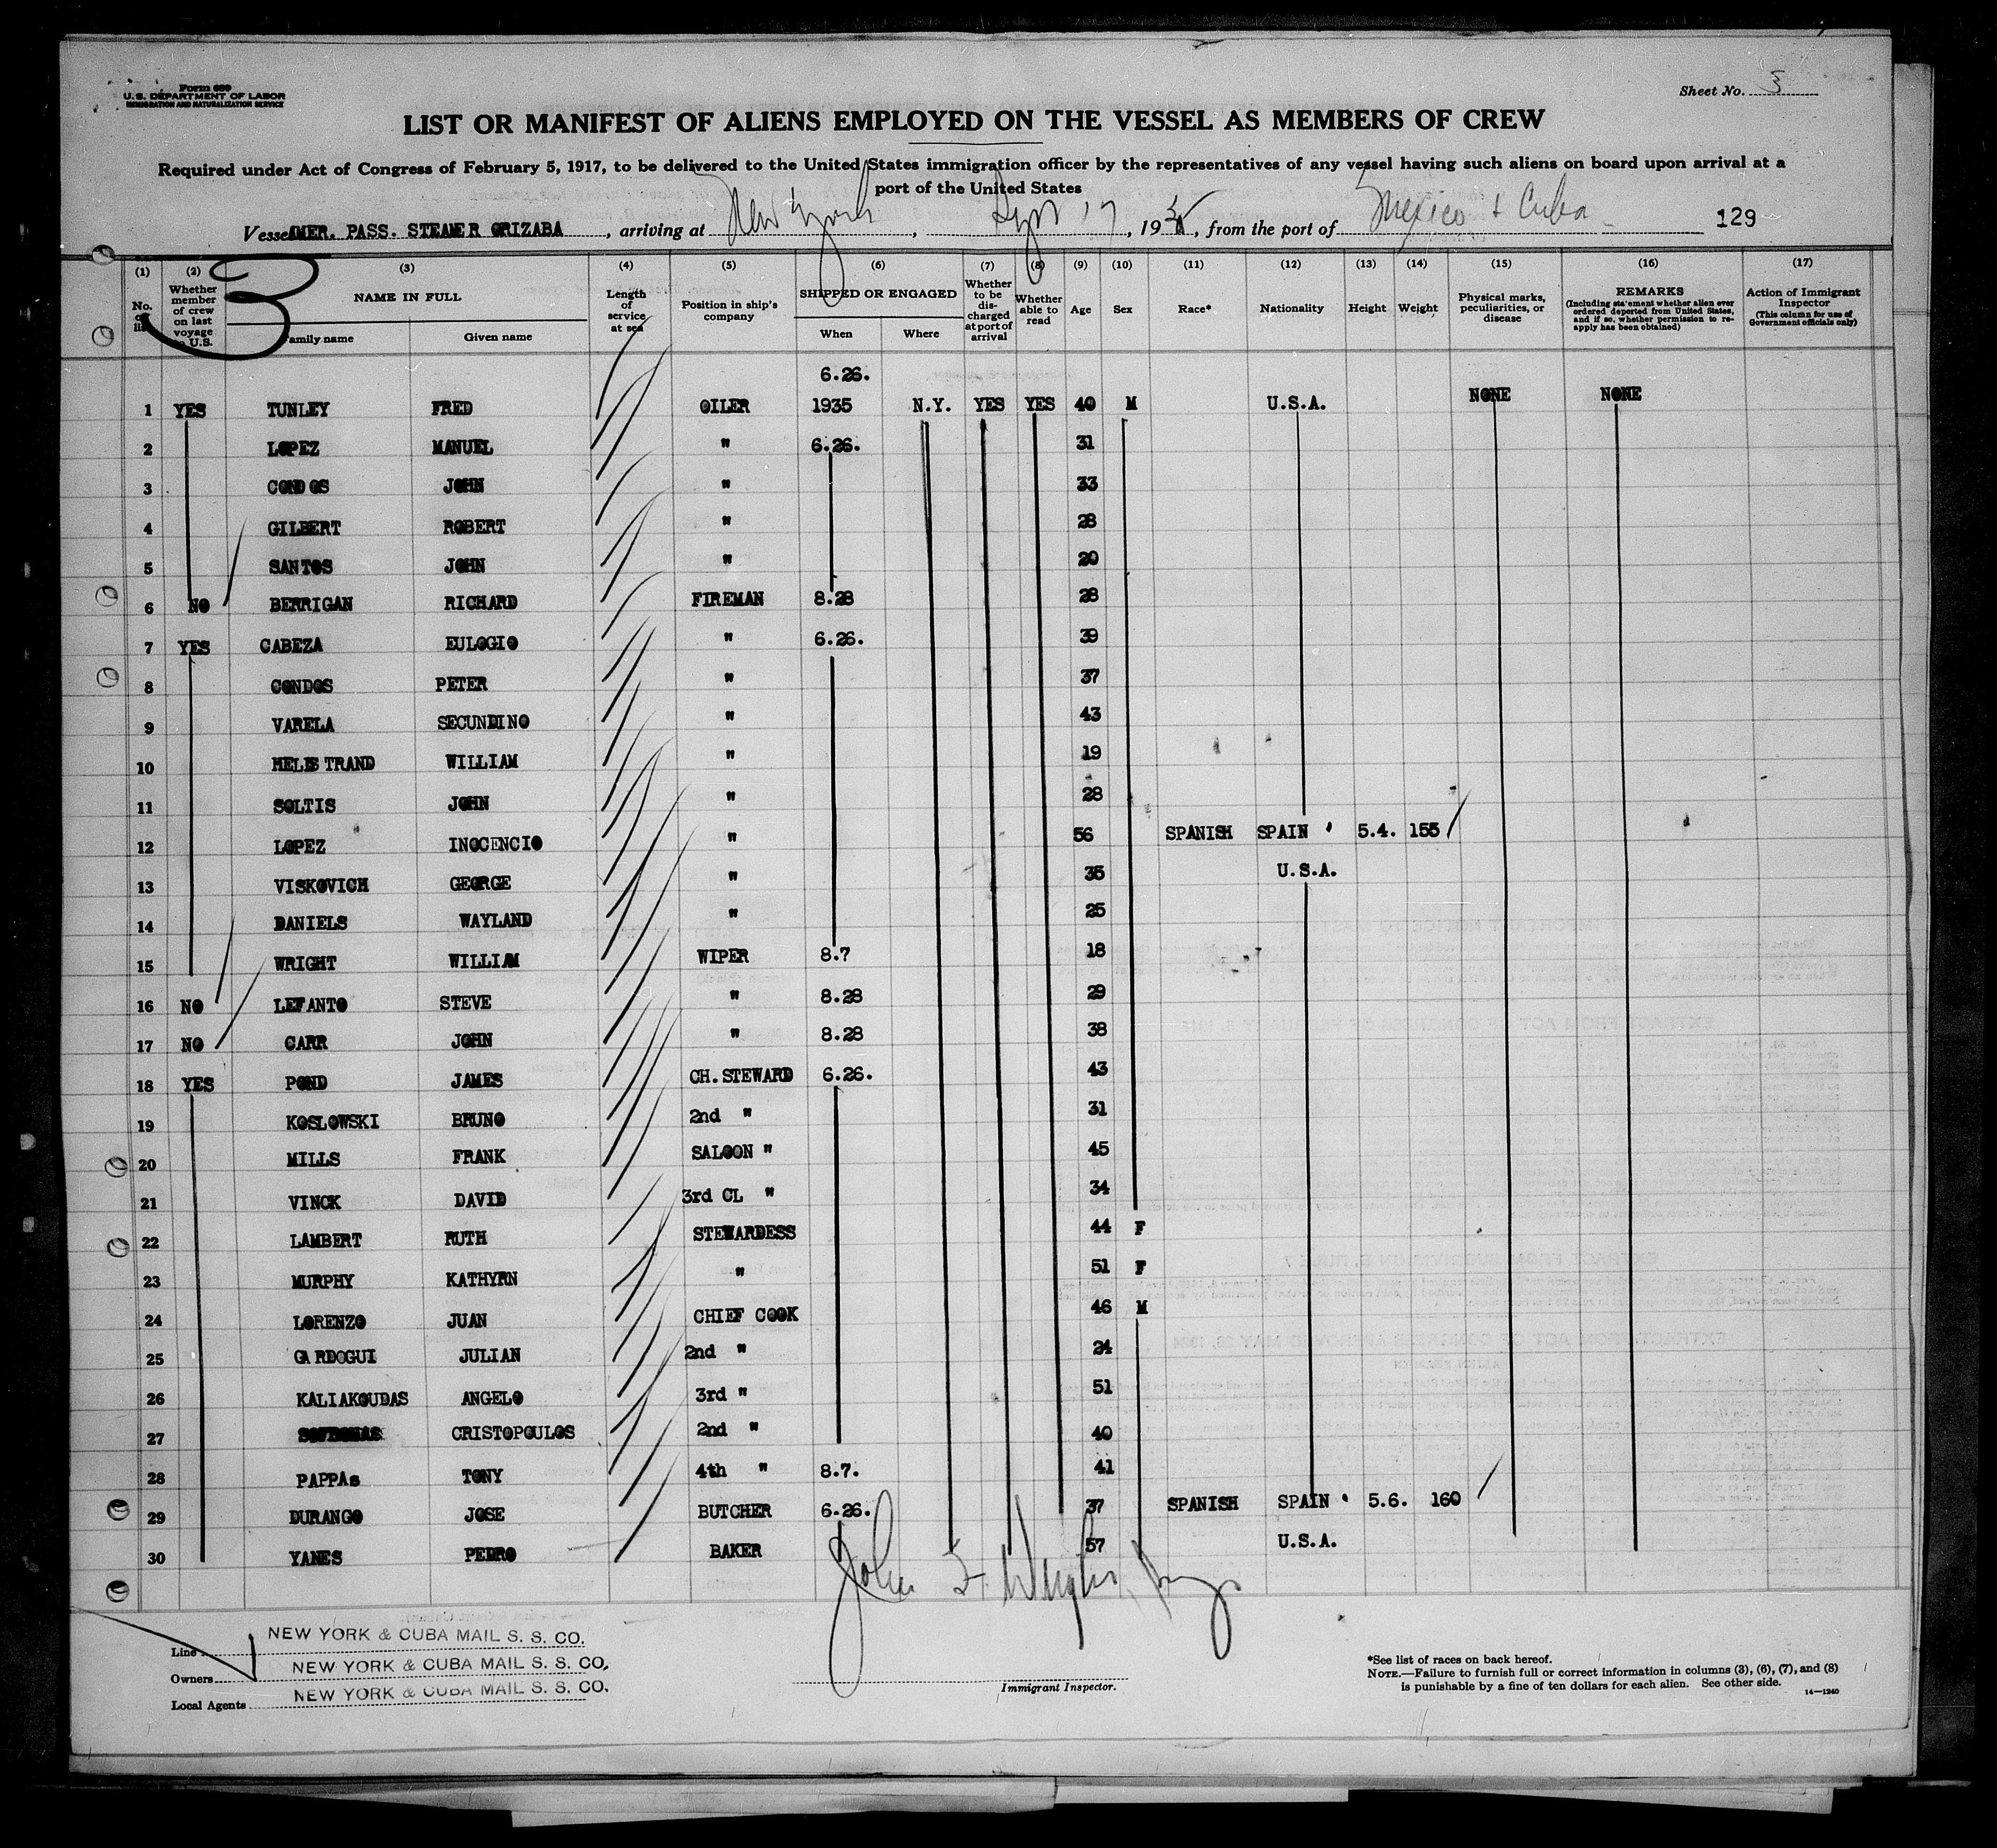 Form 689
U. S. DEPARTMENT OF LABOR
IMMIGRATION AND NATURALIZATION SERVICE
Sheet No. 3
LIST OR MANIFEST OF ALIENS EMPLOYED ON THE VESSEL AS MEMBERS OF CREW
Required under Act of Congress of February 5, 1917, to be delivered to the United States immigration officer by the representatives of any vessel having such aliens on board upon arrival at a
port of the United States
Vessel AMER. PASS. STEAMER ORIZABA, arriving at New York, Sept 17, 1935, from the port of Mexico & Cuba 129
3
(1) (2) (3) (4) (5) (6) (7) (8) (9) (10) (11) (12) (13) (14) (15) (16) (17)
No. on list
Whether member of crew on last voyage to U.S.
NAME IN FULL
Family name Given name
Length of service at sea
Position in ship's company
SHIPPED OR ENGAGED
When Where
Whether to be discharged at port of arrival
Whether able to read
Age Sex Race* Nationality Height Weight
Physical marks, peculiarities, or disease
REMARKS
(Including statement whether alien ever ordered deported from United States, and if so, whether permission to reapply has been obtained)
Action of Immigrant Inspector
(This column for use of Government officials only)
6.26.
1 YES TUNLEY FRED OILER 1935 N.Y. YES YES 40 M U.S.A. NONE NONE
2 LOPEZ MANUEL " 6.26. 31
3 CONDOS JOHN " 33
4 GILBERT ROBERT " 28
5 SANTOS JOHN " 20
6 NO BERRIGAN RICHARD FIREMAN 8.28 28
7 YES CABEZA EULOGIO " 6.26. 39
8 CONDOS PETER " 37
9 VARELA SECUNDINO " 43
10 HELSTRAND WILLIAM " 19
11 SOLTIS JOHN " 28
12 LOPEZ INOCENCIO " 56 SPANISH SPAIN 5.4. 155
13 VISKOVICH GEORGE " 35 U.S.A.
14 DANIELS WAYLAND " 25
15 WRIGHT WILLIAM WIPER 8.7 18
16 NO LEFANTO STEVE " 8.28 29
17 NO CARR JOHN " 8.28 38
18 YES POND JAMES CH. STEWARD 6.26. 43
19 KOSLOWSKI BRUNO 2nd " 31
20 MILLS FRANK SALOON " 45
21 VINCK DAVID 3rd CL " 34
22 LAMBERT RUTH STEWARDESS 44 F
23 MURPHY KATHYRN " 51 F
24 LORENZO JUAN CHIEF COOK 46 M
25 GARDOGUI JULIAN 2nd " 24
26 KALIAKOUDAS ANGELO 3rd " 51
27 CRISTOPOULOS 2nd " 40
28 PAPPAs TONY 4th " 8.7. 41
29 DURANGO JOSE BUTCHER 6.26. 37 SPANISH SPAIN 5.6. 160
30 YANES PEDRO BAKER 57 U.S.A.
John
Line NEW YORK & CUBA MAIL S. S. CO.
Owners NEW YORK & CUBA MAIL S. S. CO.
Local Agents NEW YORK & CUBA MAIL S. S. CO.
Immigrant Inspector.
*See list of races on back hereof.
NOTE.—Failure to furnish full or correct information in columns (3), (6), (7), and (8)
is punishable by a fine of ten dollars for each alien. See other side.
14—1240